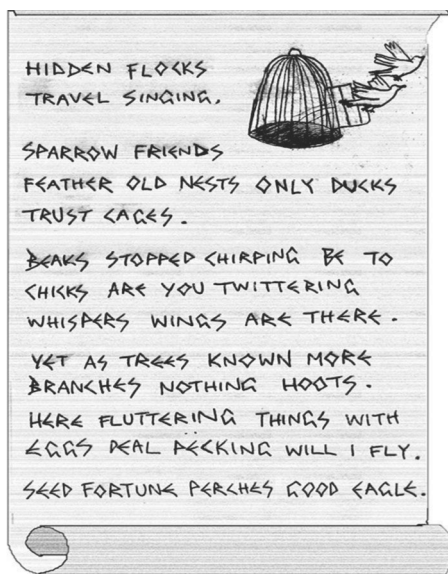 HIDDEN FLOCKS
TRAVEL SINGING.
SPARROW FRIENDS
FEATHER OLD NESTS ONLY DUCKS
TRUST CAGES.
BEAKS STOPPED CHIRPING BE TO
CHICKS ARE YOU TWITTERING
WHISPERS WINGS ARE THERE.
YET AS TREES KNOWN MORE
BRANCHES NOTHING HOOTS.
HERE FLUTTERING THINGS WITH
EGGS DEAL PECKING WILL I FLY.
SEED FORTUNE PERCHES GOOD EAGLE.